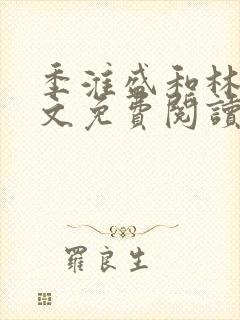 季淮盛和林
文免費閱讀
羅良生